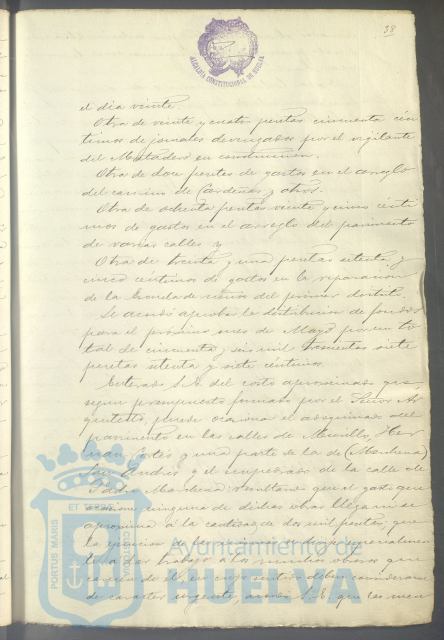 38
ALCALDIA CONSTITUCIONAL DE HUELVA
el dia veinte.
Otra de veinte y cuatro pesetas cincuenta cén
timos de jornales devengados por el vigilante
del Matadero en construccion.
Otra de doce pesetas de gastos en el arreglo
del camino de Cardeñas y otros.
Otra de ochenta pesetas veinte y cinco cénti
mos de gastos en el arreglo del pavimento
de varias calles y
Otra de treinta y una pesetas setenta y
cinco céntimos de gastos en la reparacion
de la Escuela de niños del primer distrito.
Se acordó aprobar la distribucion de fondos
para el próximo mes de Mayo por un to
tal de cincuenta y seis mil trescientas siete
pesetas setenta y siete céntimos.
Enterado S.E. del costo aproximado que,
segun presupuesto formado por el Señor Ar
quitecto, puede ocasionar el adoquinado del
pavimento en las calles de Monillo, Her
nan Cortés y una parte de la de (Marchena)
y el empedrado de la calle de
Pedro Marchena; resultando que el gasto que
ocasione ninguna de dichas obras llega ni se
aproxima á la cantidad de dos mil pesetas; que
la ejecucion de las mismas
á dar trabajo á los muchos obreros que
carecen de él, en cuyo sentido deben considerarse
de carácter urgente, acordó S.E. que las men
PORTUS MARIS ET TERRAE CUSTODIA
Ayuntamiento de
HUELVA